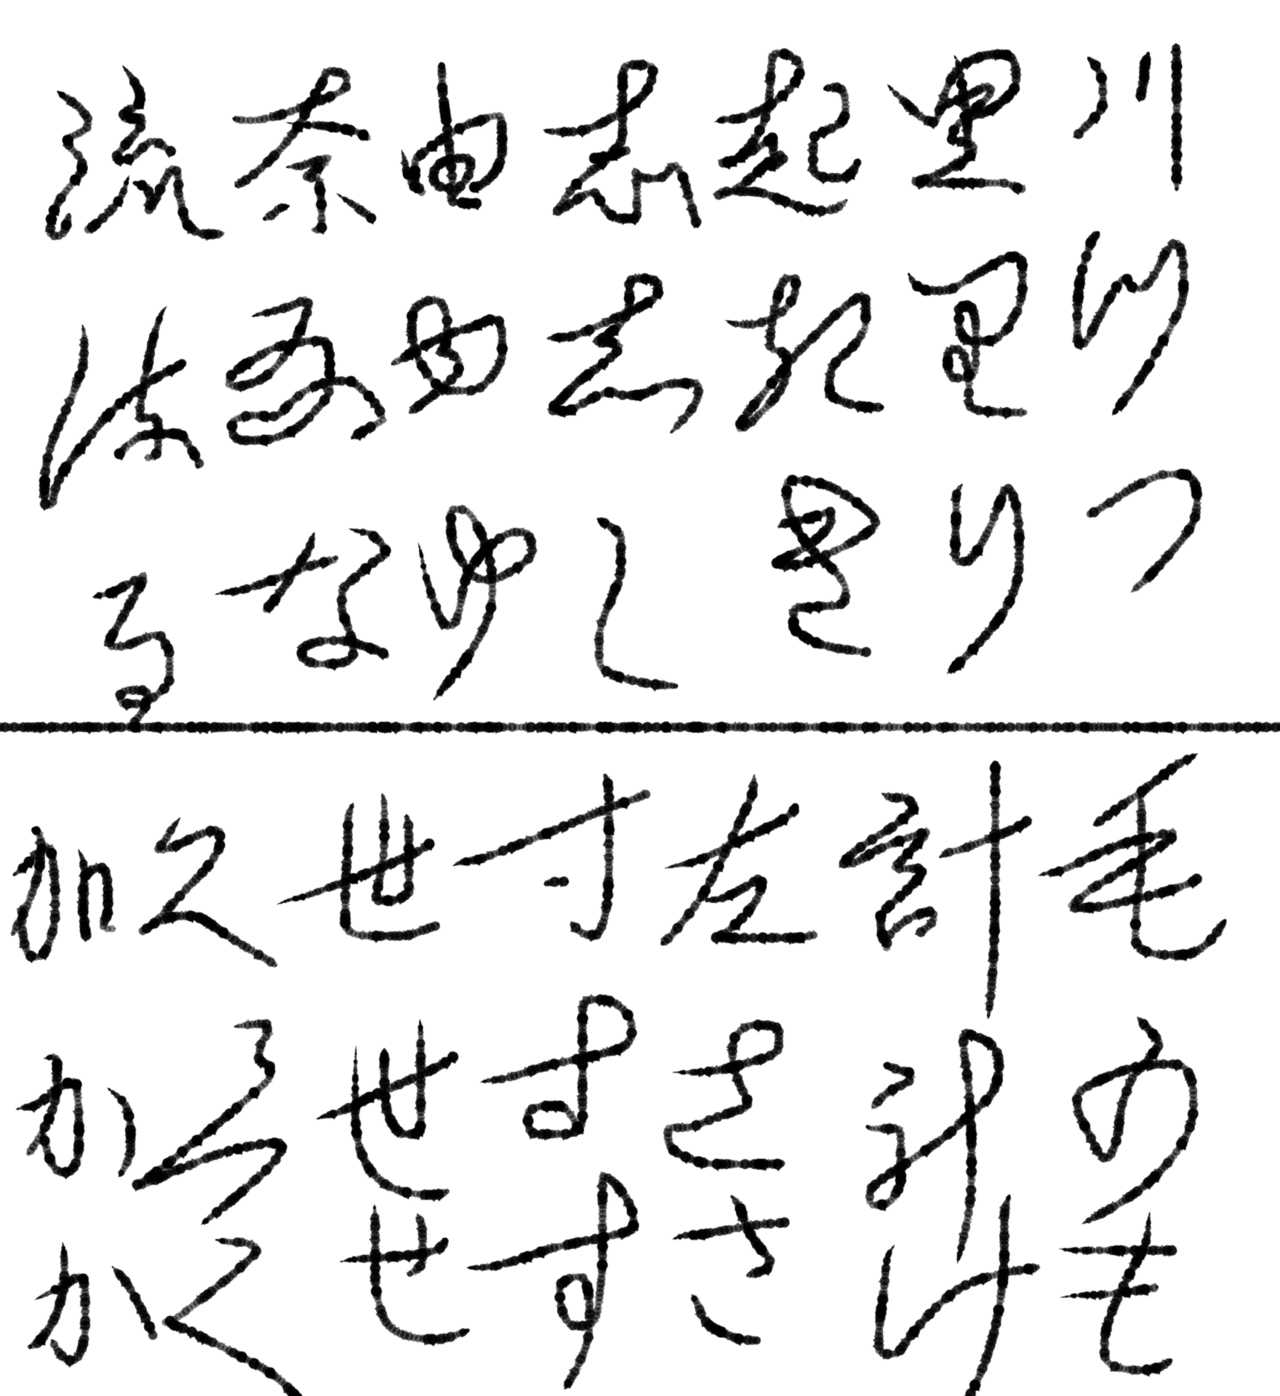 流奈由志起里川
流奈由志起里川
るなゆしきりつ
加久世寸左計毛
加久世寸左計毛
かくせすさけも